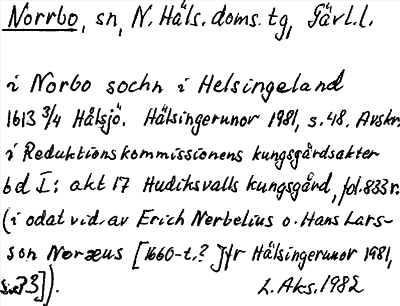 Norrbo, sn, N. Häls. doms. tg, Gävl.l.
i Norbo sochn i Helsingeland
1613 3/4 Hålsjö. Hälsingerunor 1981, s.48. Avskr.
i Reduktionskommissionens kungsgårdsakter
bd I: akt 17 Hudiksvalls kungsgård, fol.833r.
(i odat vid. av Erich Nerbelius o. Hans Lars-
son Noræus [1660-t.? Jfr Hälsingerunor 1981,
33]).
L. Aks. 1982